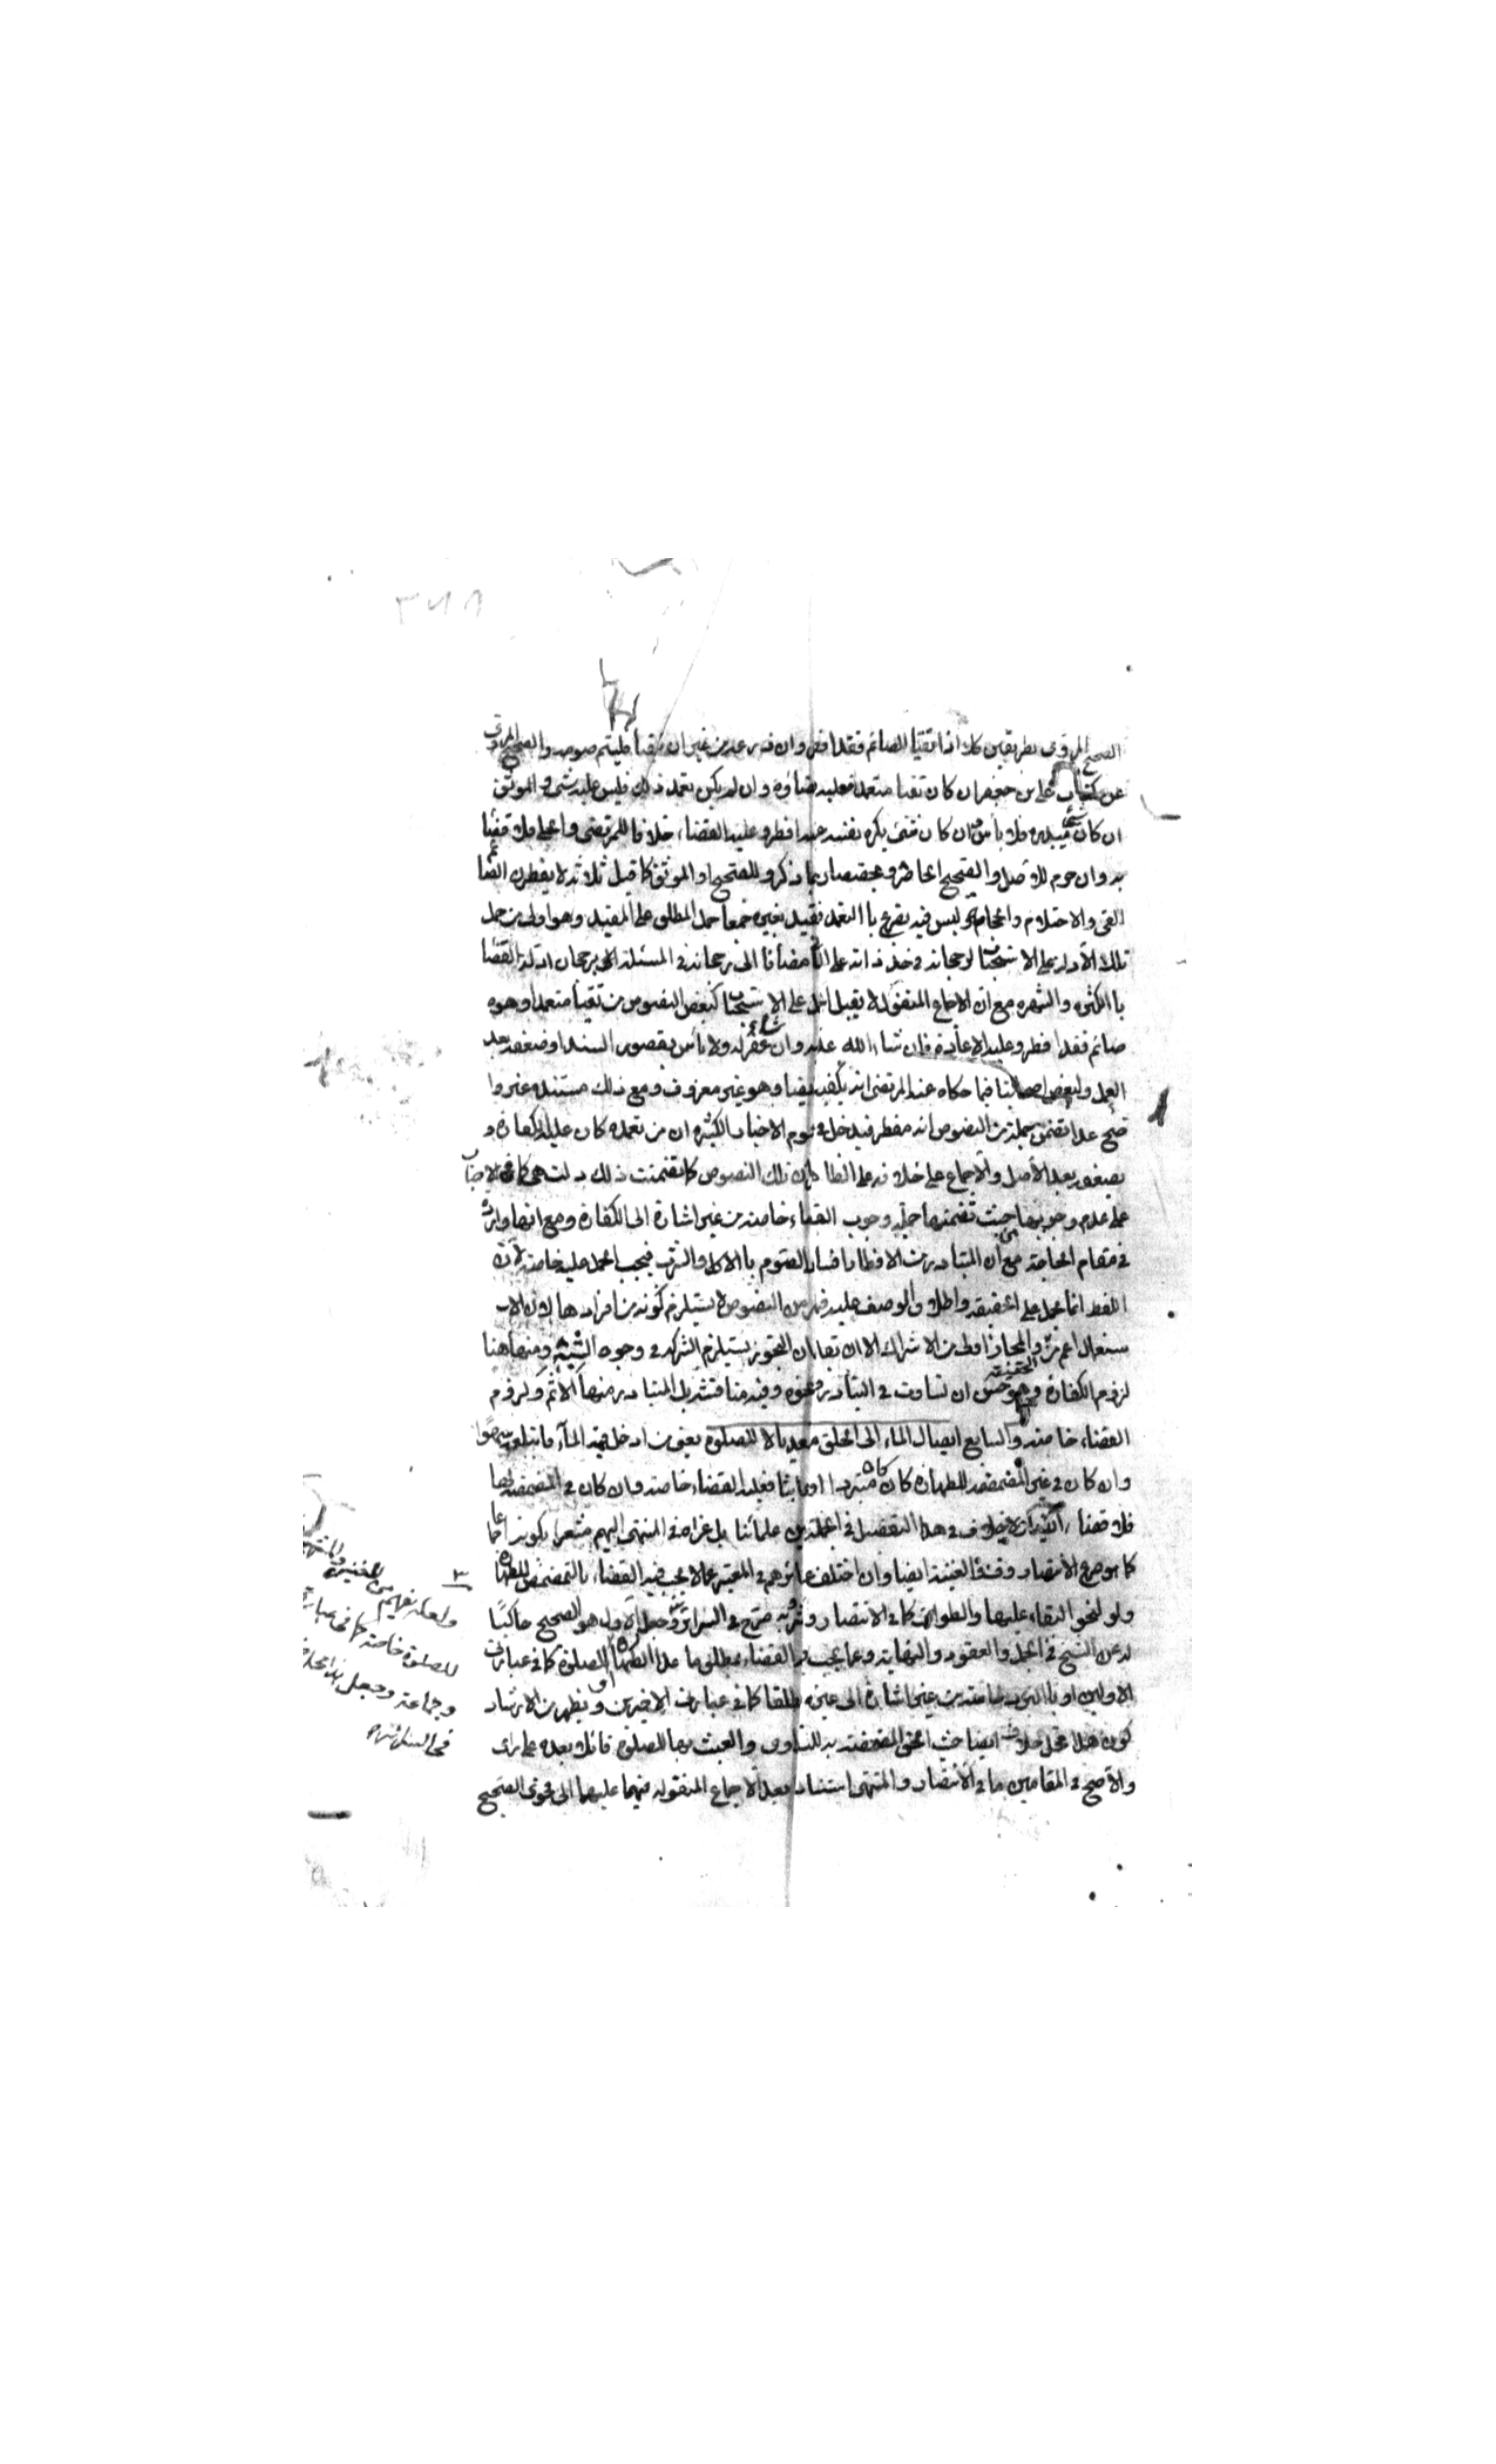 ٣٧٨
الصحيح المروى بطريقين كك اذا تقيأ الصائم فقد افطر وان ذرعه من غير ان يتقيأ فليتم صومه والصحيح المروى
عن كتاب على بن جعفر ان كان تقيأ متعمدا فعليه قضاؤه وان لم يكن تعمد ذلك فليس عليه شى والموثق
ان كان شئ يبدره فلا بأس وان كان شئ يكره نفسه عليه افطر وعليه القضاء خلافا للمرتضى والحلى فلا قضاء
به وان حرم للاصل والصحيح الحاضر ويخصصان بما ذكر وللصحيح او الموثق كما قيل ثلاثة لا يفطرن الصائم
القئ والاحتلام والحجامة وليس فيه تصريح با التعمد فيقيد بغيره جمعا حمل المطلق على المقيد وهو اولى من حمل
تلك الأدلة على الاستحباب لرجحانه فى حد ذاته على مضافا الى رجحانه فى المسئلة برجحان ادلة القضاء
با الكثرة والشهرة مع ان الاجماع المنقول لا يقبل الحمل على الاستحباب كبعض النصوص من تقيأ متعمدا وهو
صائم فقد افطر وعليه الاعادة فان شاء الله عذبه وان شاء غفر له ولا بأس بقصور السند او ضعفه بعد
العمل ولبعض اصحابنا فيما حكاه عنه المرتضى انه يكفر ايضا وهو غير معروف ومع ذلك مستنده غير وا
ضح عدا تضمن جملة من النصوص انه مفطر فيدخل فى عموم الاخبار الكثيرة ان من تعمده كان عليه الكفارة و
يضعف بعد الأصل والاجماع على خلافه على الظاهر ان تلك النصوص كما تضمنت ذلك دلت هى كباقى الاخبار
على عدم وجوبها حيث تضمنها جملة وجوب القضاء خاصة من غير اشارة الى الكفارة ومع انها واردة
فى مقام الحاجة مع ان المتبادر من الافطار افساد الصوم با الاكل والشرب فيجب الحمل عليه خاصة لان
اللفظ انما يحمل على الحقيقة واطلاق الوصف عليه فى من النصوص لا يستلزم كونه من افرادها لان الا
ستعمال اعم منه والمجاز اولى من الاشتراك الا ان يقال ان التجوز يستلزم الشركة فى وجوه الشبه ومنها هنا
لزوم الكفارة وهو حسن ان تساوت فى التبادر وعدمه وفيه مناقشة بل المتبادر منها الاثم ولزوم
القضاء خاصة والسابع ايصال الماء الى الحلق متعديا لا للصلوة يعنى من ادخل فمه الماء فابتلعه سهوا
وان كان فى غير المضمضة للطهارة كان متبردا او عابثا فعليه القضاء خاصة وان كان فى المضمضة لها
فلا قضاء خلاف فى هذا التفصيل فى الجملة بين علمائنا بل عزاه فى المنتهى اليهم مشعرا بكونه اجماعا
كما هو صريح الانتصار و الغنية ايضا وان اختلف عبائرهم فى المعبر عما لا يجب فيه القضاء بالتمضمض للطهارة
ولو لنحو البقاء عليها والطواف كما فى الانتصار وبه صرح فى السرائر وجعل الاول هو الصحيح حاكيا
له عن الشيخ فى الجمل والعقود والنهاية وعما يجب فيه القضاء بمطلق ما عدا الطهارة او الصلوة كما فى عبائر
الاولين او با التبرد خاصة من غير اشارة الى غيره مطلقا كما فى عبارة الاخيرين ويظهر من الارشاد
كون هذا محل خلاف ايضا حيث الحق المضمضة به للتداوى والعبث بها للصلوة قائلا بعده على راى
والأصح فى المقامين ما فى الانتصار والمنتهى استنادا بعد الاجماع المنقولة فيهما عليهما الى فحوى الصحيح
٣
للصلوة خاصة كما فى
وجماعة وجعل